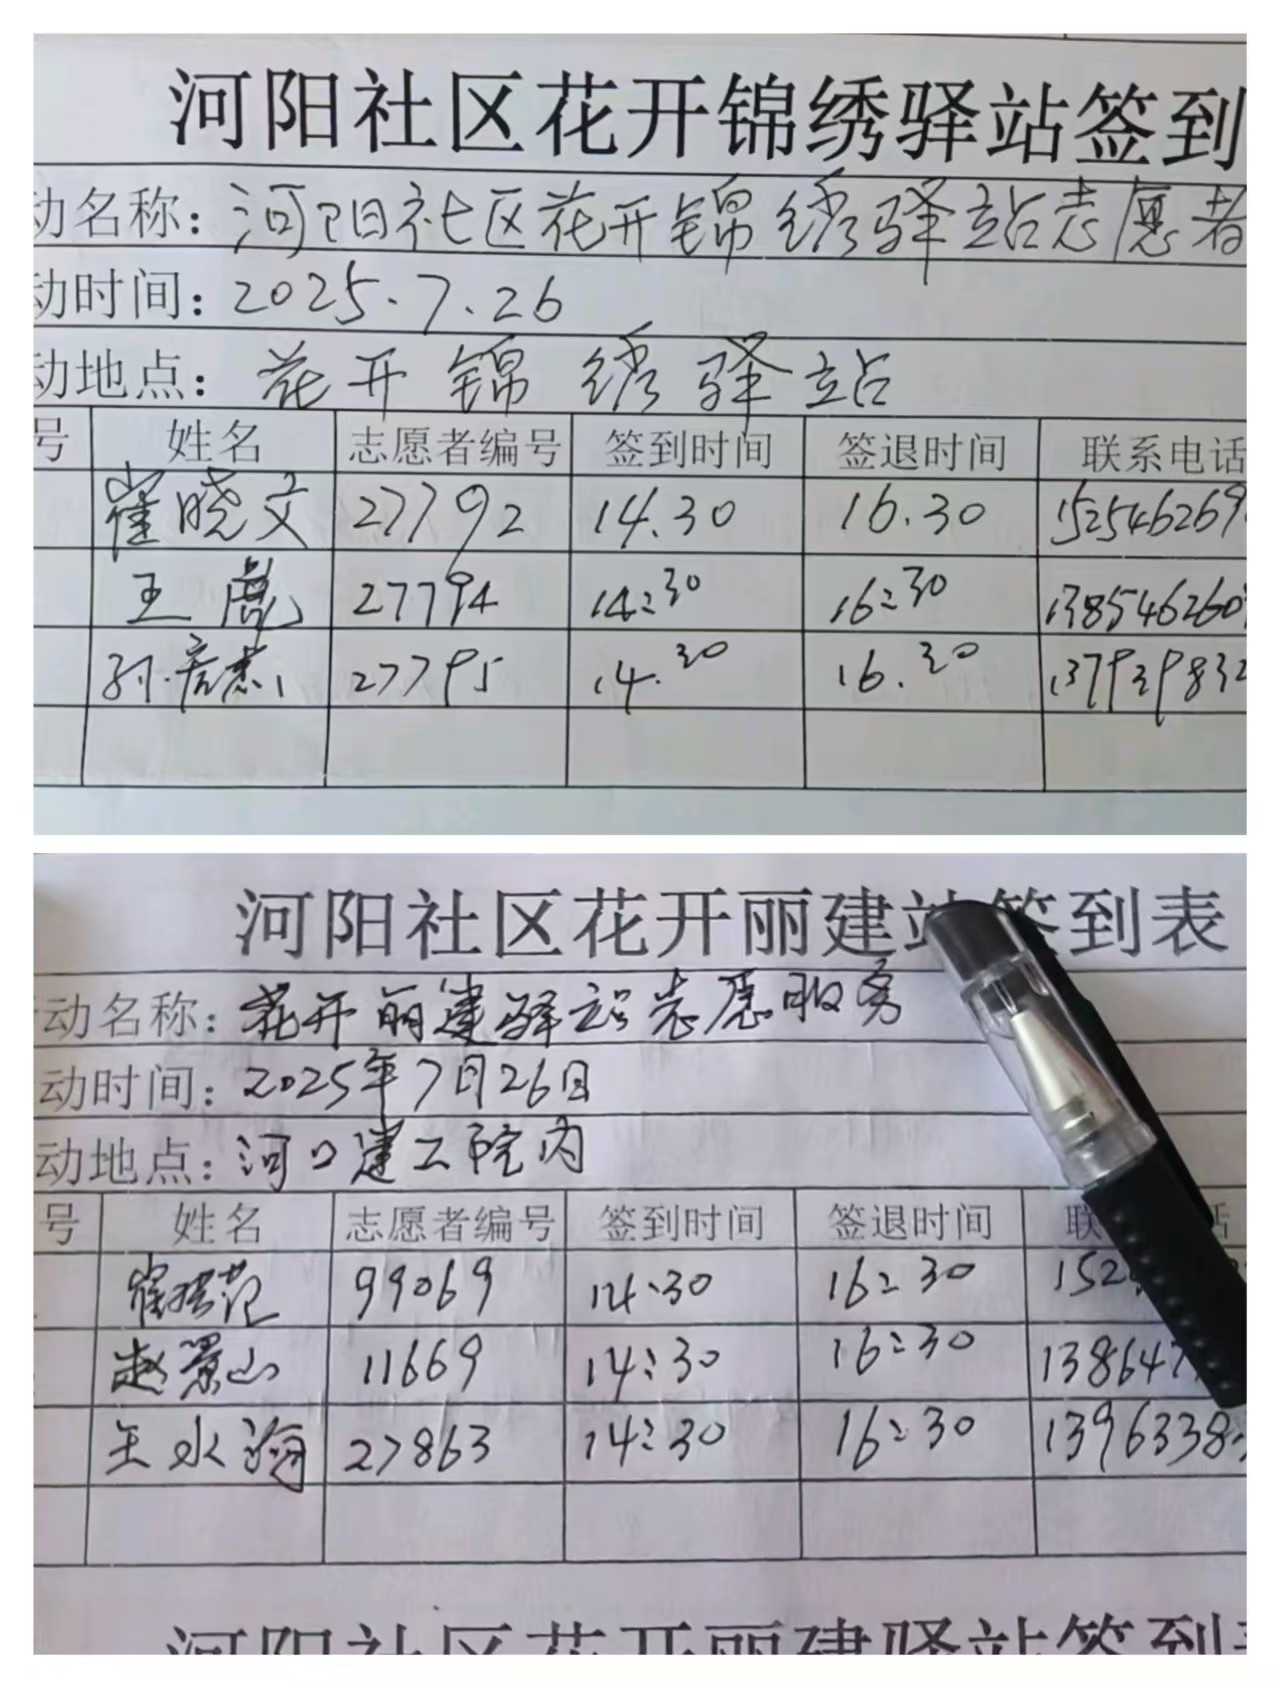 河阳社区花开锦绣驿站签到
动名称：河阳社区花开锦绣驿站志愿者
动时间：2025.7.26
动地点：花开锦绣驿站
号 姓名 志愿者编号 签到时间 签退时间 联系电话
崔晓文 27792 14.30 16.30 152546269
王彪 27794 14:30 16:30 138546260
孙 27795 14.30 16.30 137939832
河阳社区花开丽建站签到表
动名称：花开丽建驿站志愿服务
动时间：2025年7月26日
动地点：河口建工院内
号 姓名 志愿者编号 签到时间 签退时间 联 话
崔 范 99069 14:30 16:30 152
赵景山 11669 14:30 16:30 138647
王水海 27863 14:30 16:30 13963385
河阳社区花开丽建驿站签到表